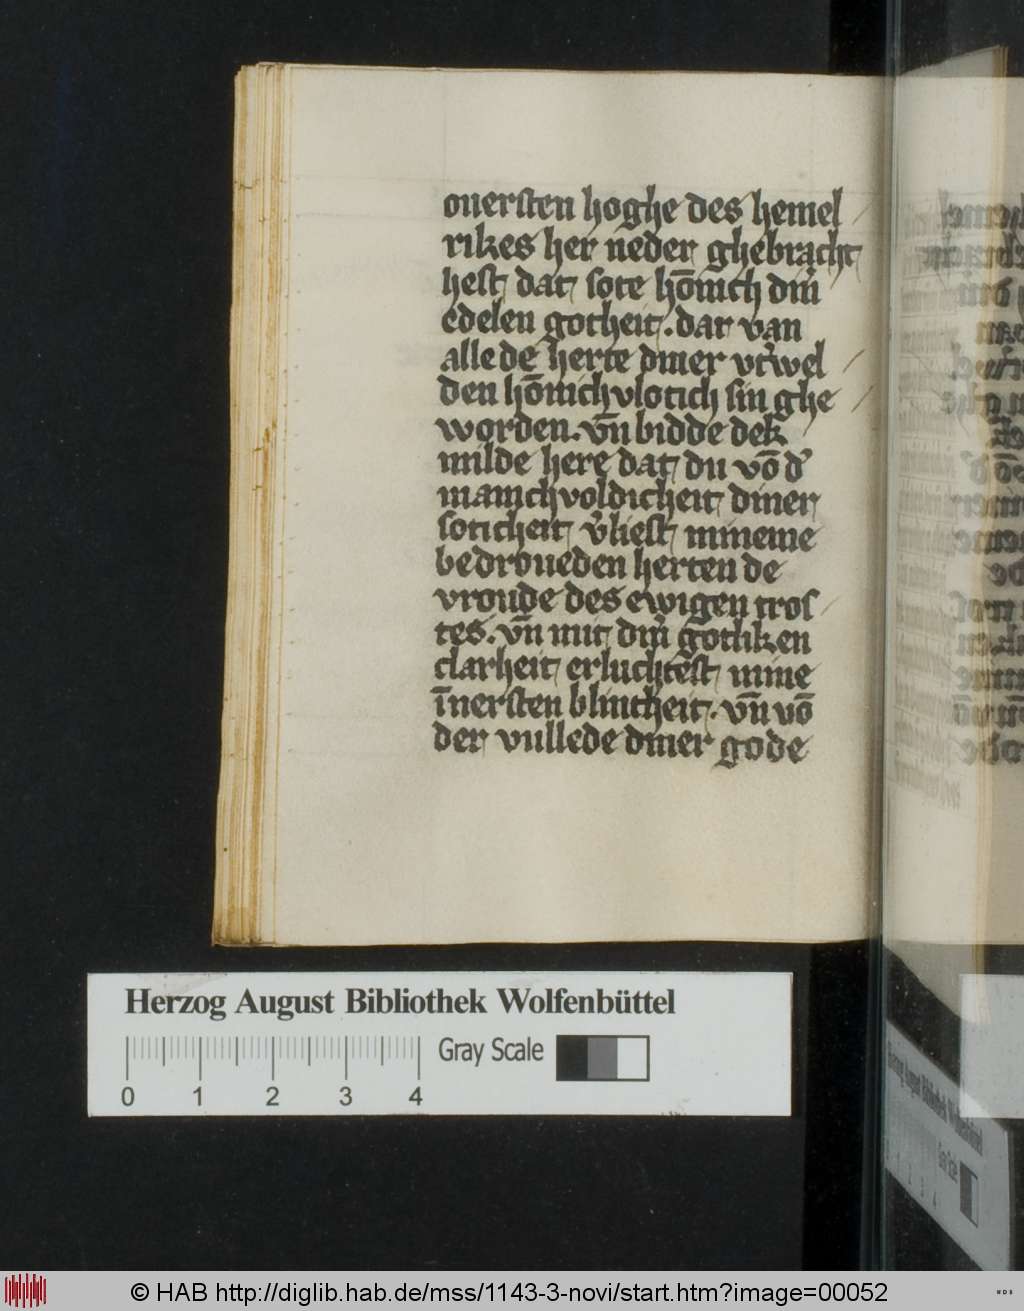 ouersten hoghe des hemel
rikes her neder ghebracht
hest dat sote hōnich din̄
edelen gotheit. dar van
alle de herte diner vt̕wel
den hōnich vlotich sin ghe
worden. vn̄ bidde dek
milde here dat du vō d̕
manichvoldicheit diner
soticheit v̕liest mineme
bedroueden herten de
vroude des ewigen tros
tes. vn̄ mit din̄ gotliken
clarheit erluchtest mine
īnersten blintheit. vn̄ vō
der vullede diner gode
Herzog August Bibliothek Wolfenbüttel
Gray Scale
0 1 2 3 4
© HAB http://diglib.hab.de/mss/1143-3-novi/start.htm?image=00052